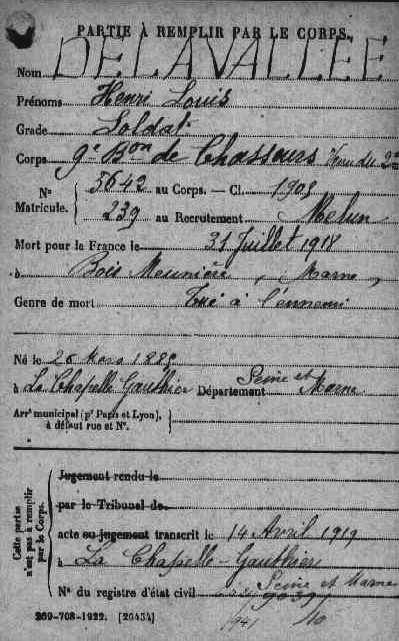 PARTIE À REMPLIR PAR LE CORPS.
Nom DELAVALLÉE
Prénoms Henri Louis
Grade Soldat
Corps 9e Bon de Chasseurs Venu du 2e
No Matricule. { 5642 au Corps. — Cl. 1905
239 au Recrutement Melun
Mort pour la France le 31 Juillet 1918
à Bois Meunière, Marne,
Genre de mort Tué à l'ennemi
Né le 26 Mars 188
à La Chapelle Gauthier Département Seine et Marne
Arrt municipal (pr Paris et Lyon), à défaut rue et No.
Cette partie n'est pas à remplir par le Corps.
Jugement rendu le
par le Tribunal de
acte ou jugement transcrit le 14 Avril 1919
à La Chapelle-Gauthier
Seine et Marne
No du registre d'état civil
269-708-1922. [26434]